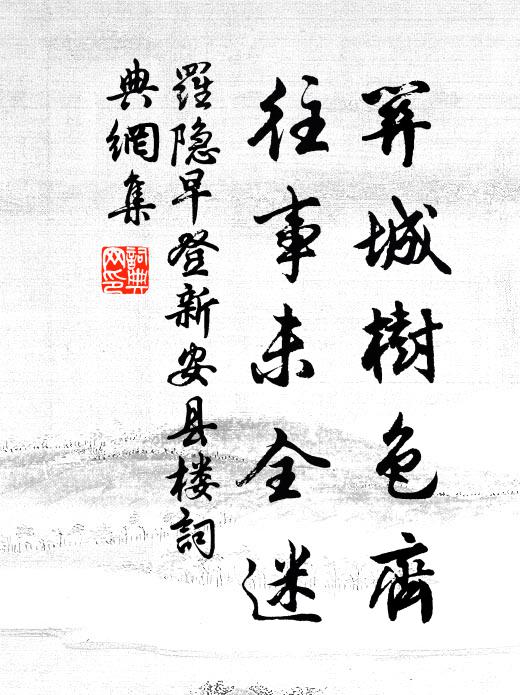 关城樹色齊
往事未全迷
羅隐早登新安县楼詞
典網集
詞典
网印